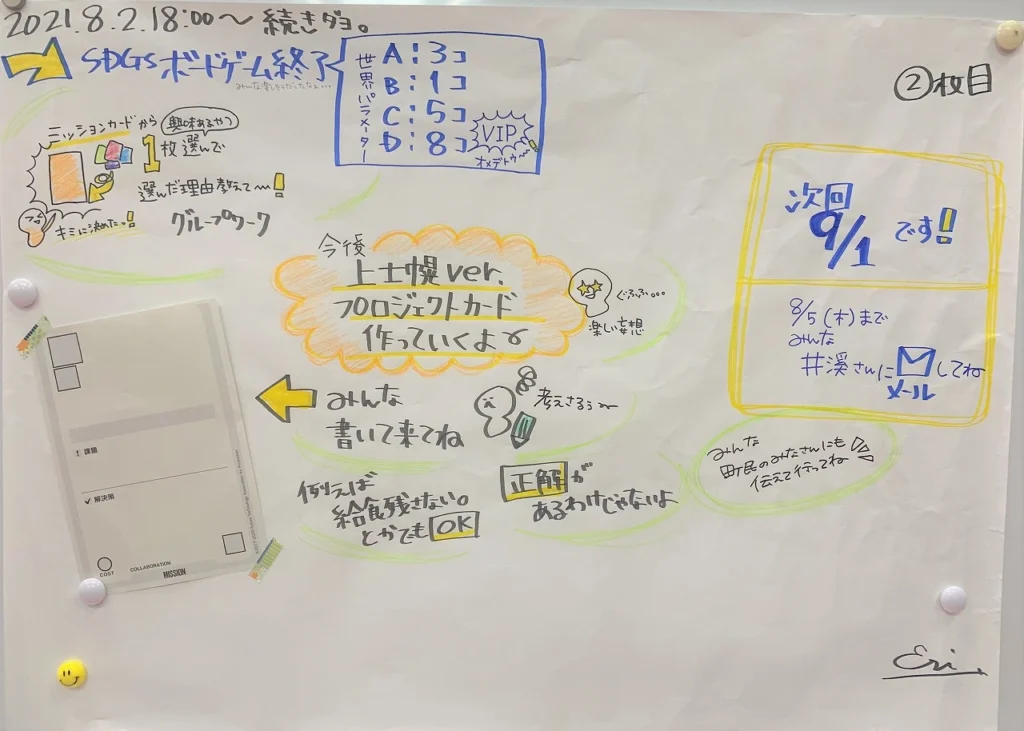 2021.8.2.18:00〜 続きダョ。
②枚目
SDGsボードゲーム終了
みんな楽しそうだったなょ…
世界パラメーター
A:3コ
B:1コ
C:5コ
D:8コ
VIP
オメデトゥ〜
ミッションカードから
興味あるやつ
1枚選んで
選んだ理由教えて〜!
キミに決めたっ!
グループワーク
今後
上士幌ver.
プロジェクトカード
作っていくよ〜
ぐふふ…
楽しい妄想
みんな
書いて来てね
考えさるぅ〜
例えば
給食残さない。
とかでもOK
正解が
あるわけじゃないよ
次回
9/1 です!
8/5(木)まで
みんな
井溪さんに
してね
メール
みんな
町民のみなさんにも
伝えて行ってね
! 課題
✓ 解決策
COST
COLLABORATION
MISSION
Eri.